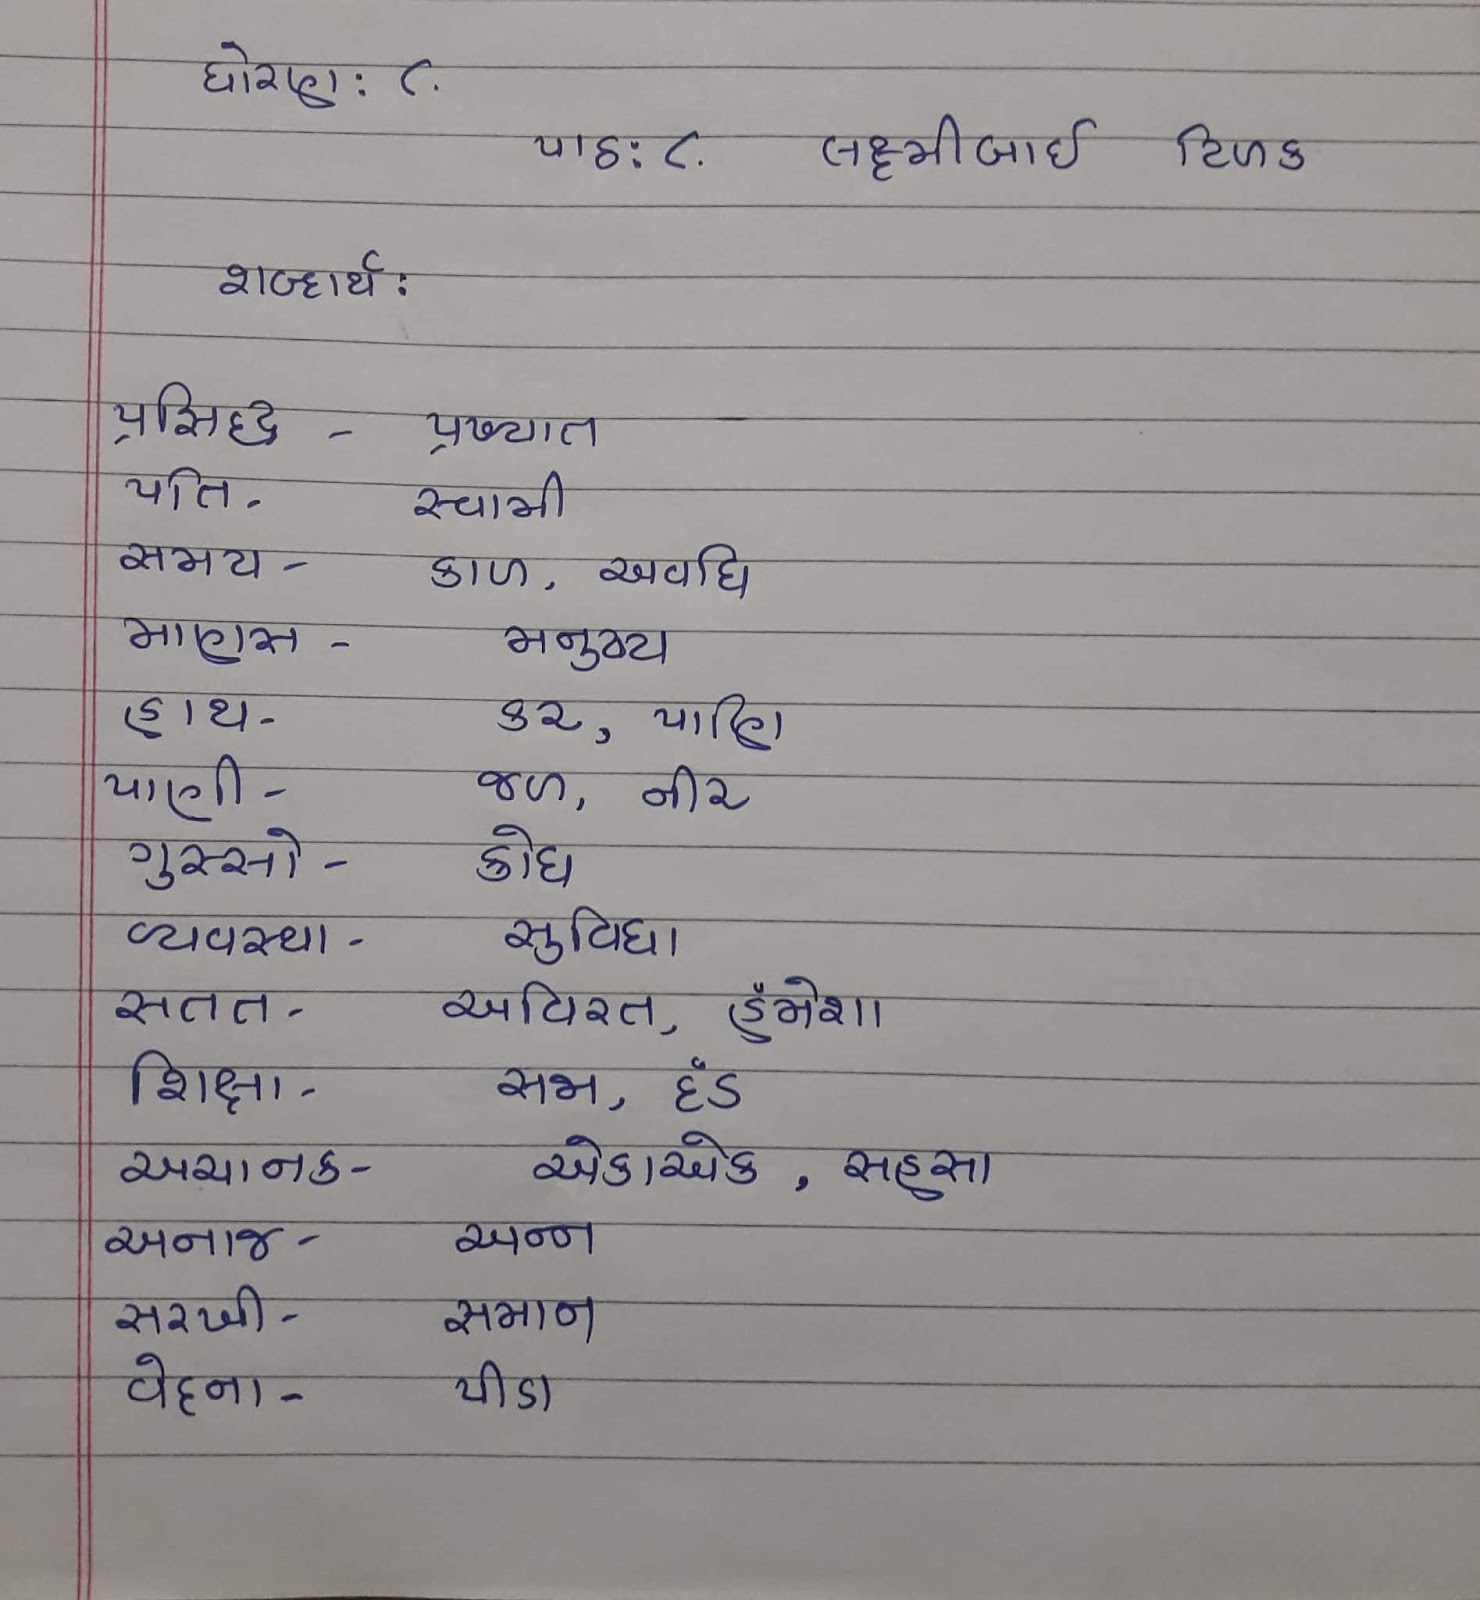 ધોરણ: ૮.
પાઠ: ૮. લક્ષ્મીબાઈ ટિળક
શબ્દાર્થ:
પ્રસિદ્ધ - પ્રખ્યાત
પતિ - સ્વામી
સમય - કાળ, અવધિ
માણસ - મનુષ્ય
હાથ - કર, પાણિ
પાણી - જળ, નીર
ગુસ્સો - ક્રોધ
વ્યવસ્થા - સુવિધા
સતત - અવિરત, હંમેશા
શિક્ષા - સજા, દંડ
અચાનક - એકાએક, સહસા
અનાજ - અન્ન
સરખી - સમાન
વેદના - પીડા